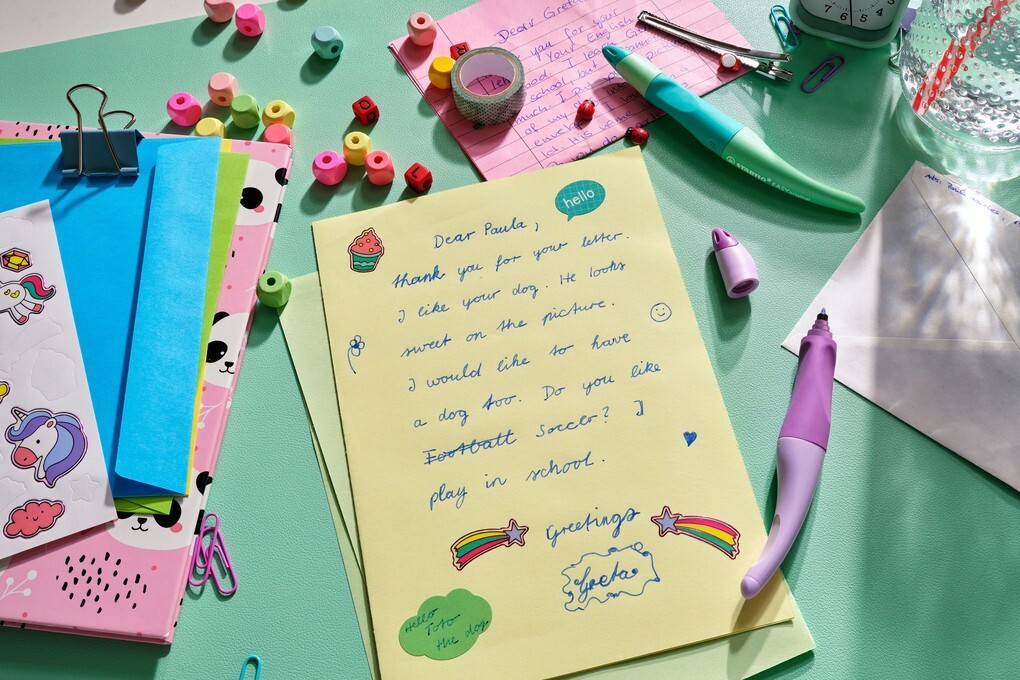 Dear Greta,
you for your
Your English
school, but
much. I
at my
STABILO
7 6 5 4
hello
Dear Paula,
thank you for your letter.
I like your dog. He looks
sweet on the picture.
I would like to have
a dog too. Do you like
Football Soccer? I
play in school.
Greetings
Greta
Hello
Toto
the dog